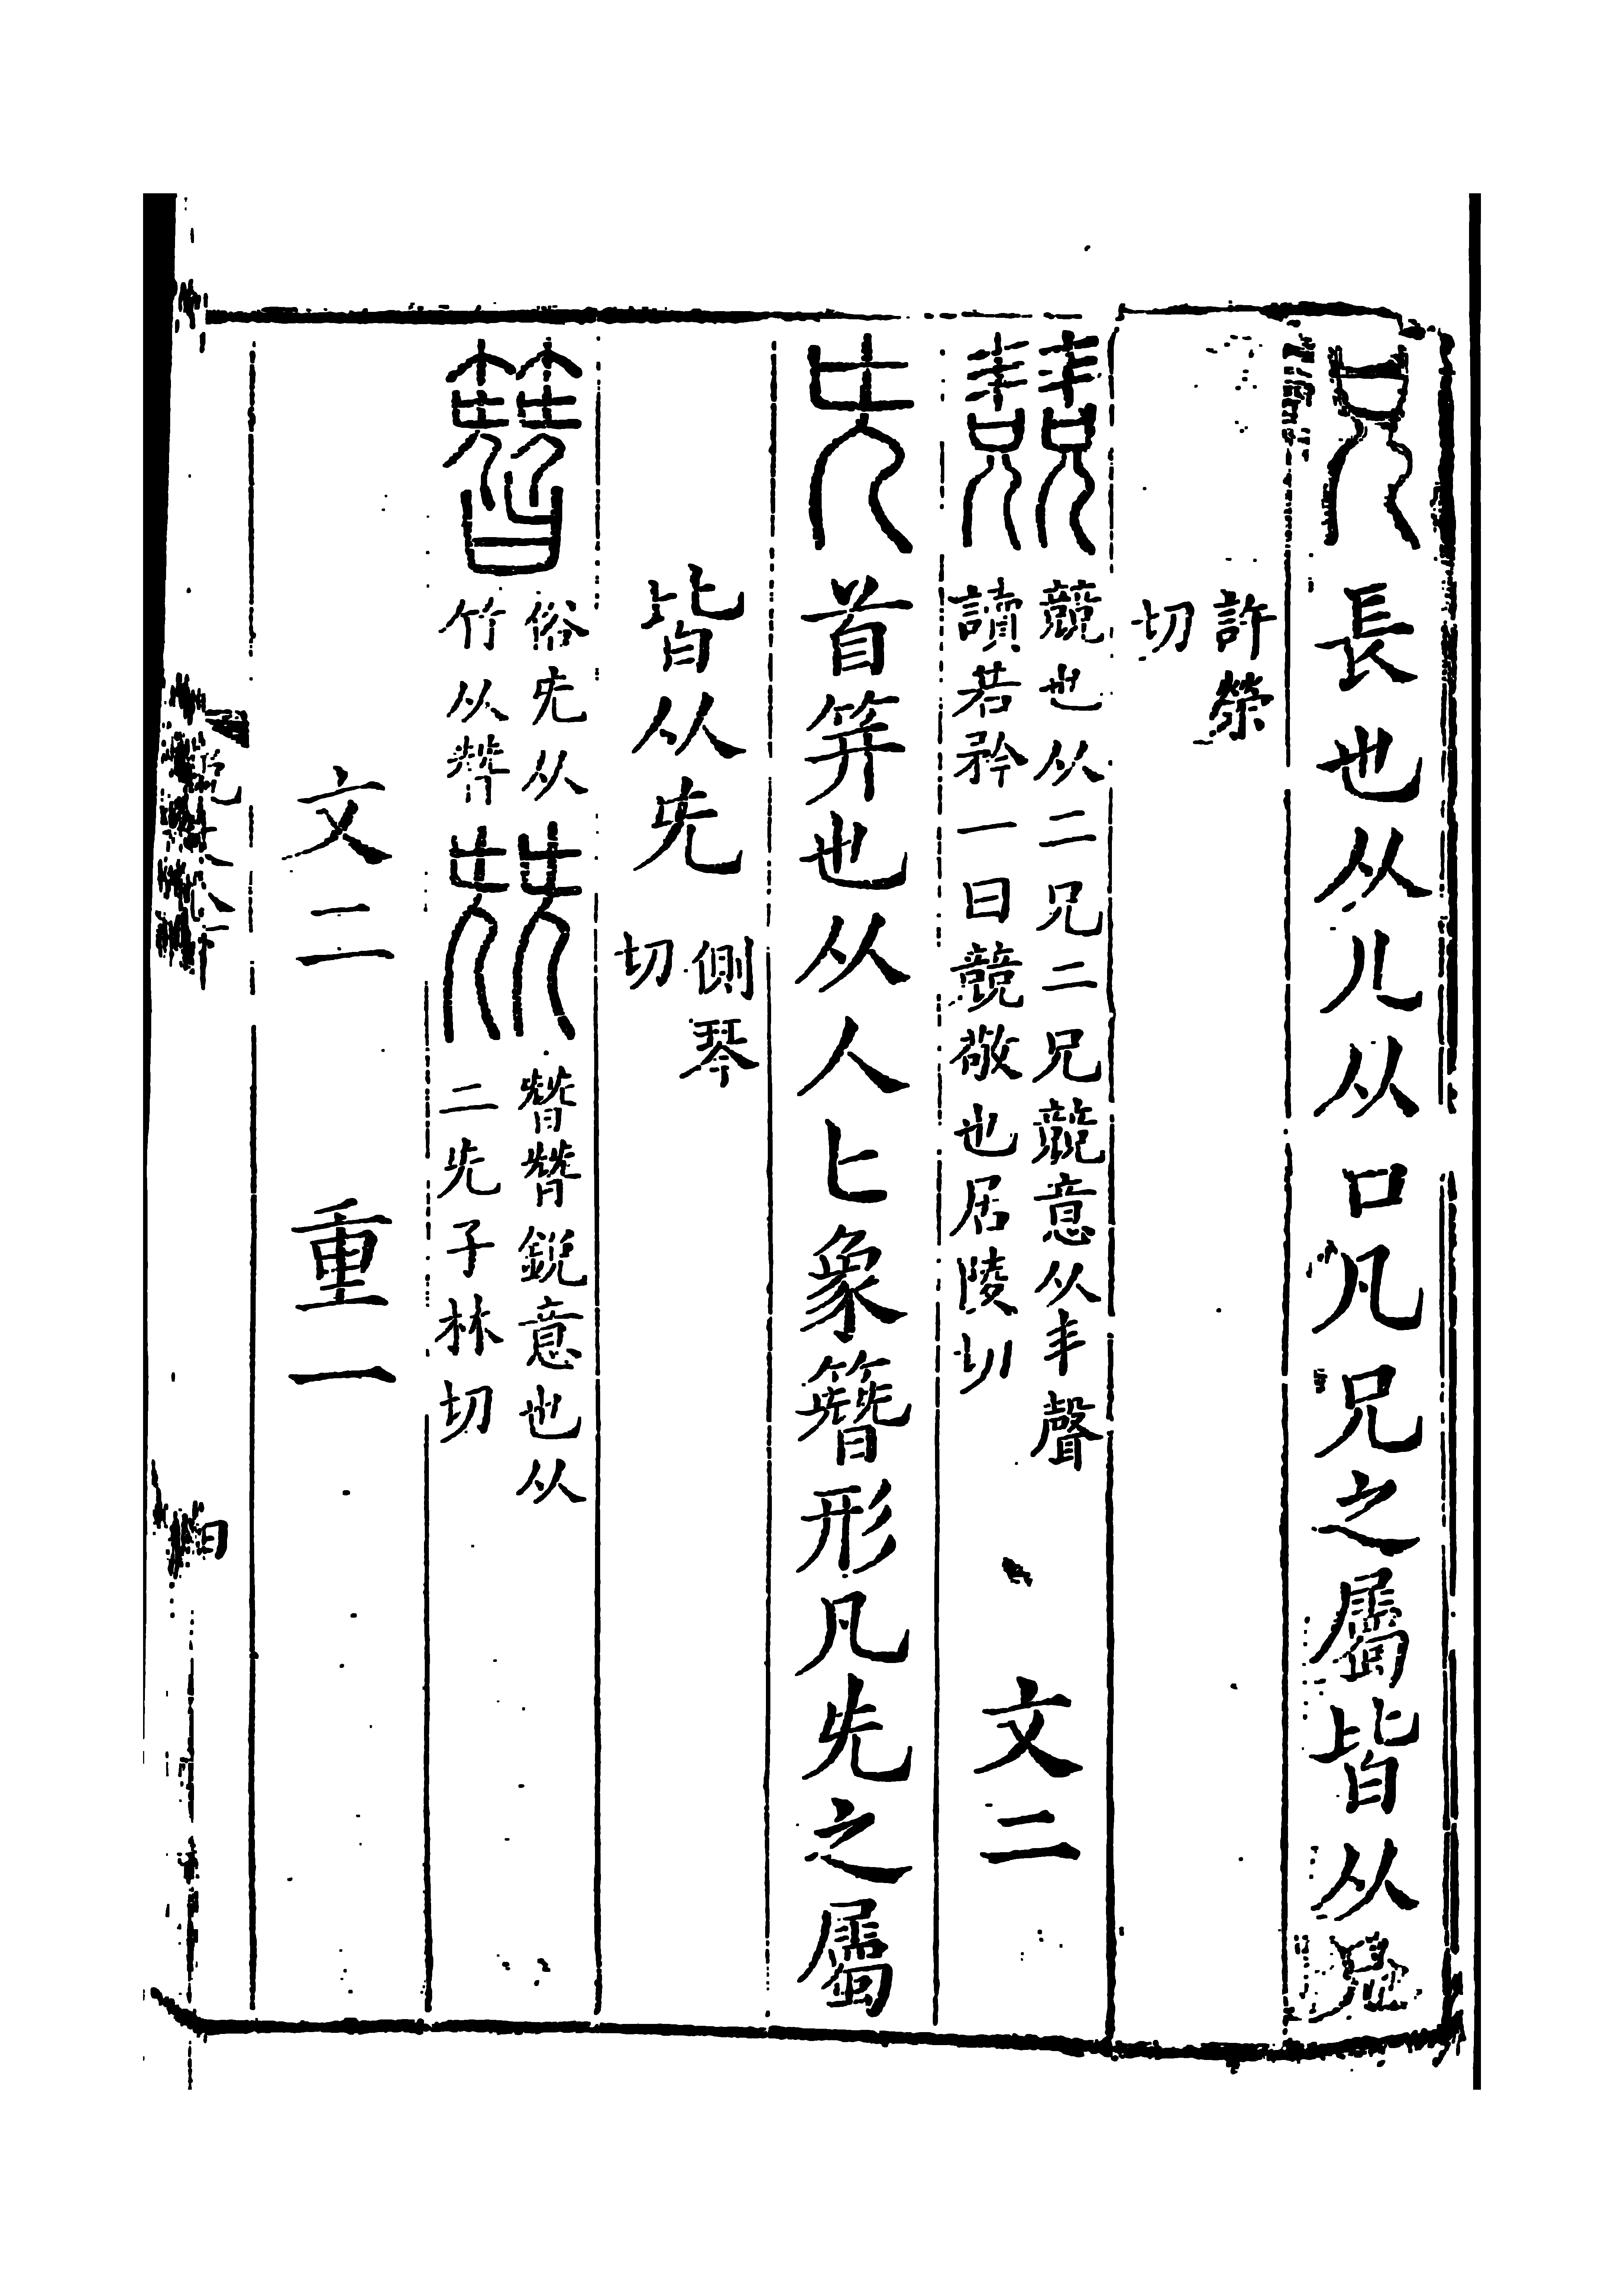 兄長也从儿从口凡兄之屬皆从兄
許榮切
競競也从二兄二兄競意从丰聲
讀若矜一曰競敬也居陵切
文二
兂首笄也从人匕象簪形凡兂之屬
皆从兂側琴切
簪俗兂从
竹从朁
兓朁朁銳意也从
二兂子林切
文二 重一